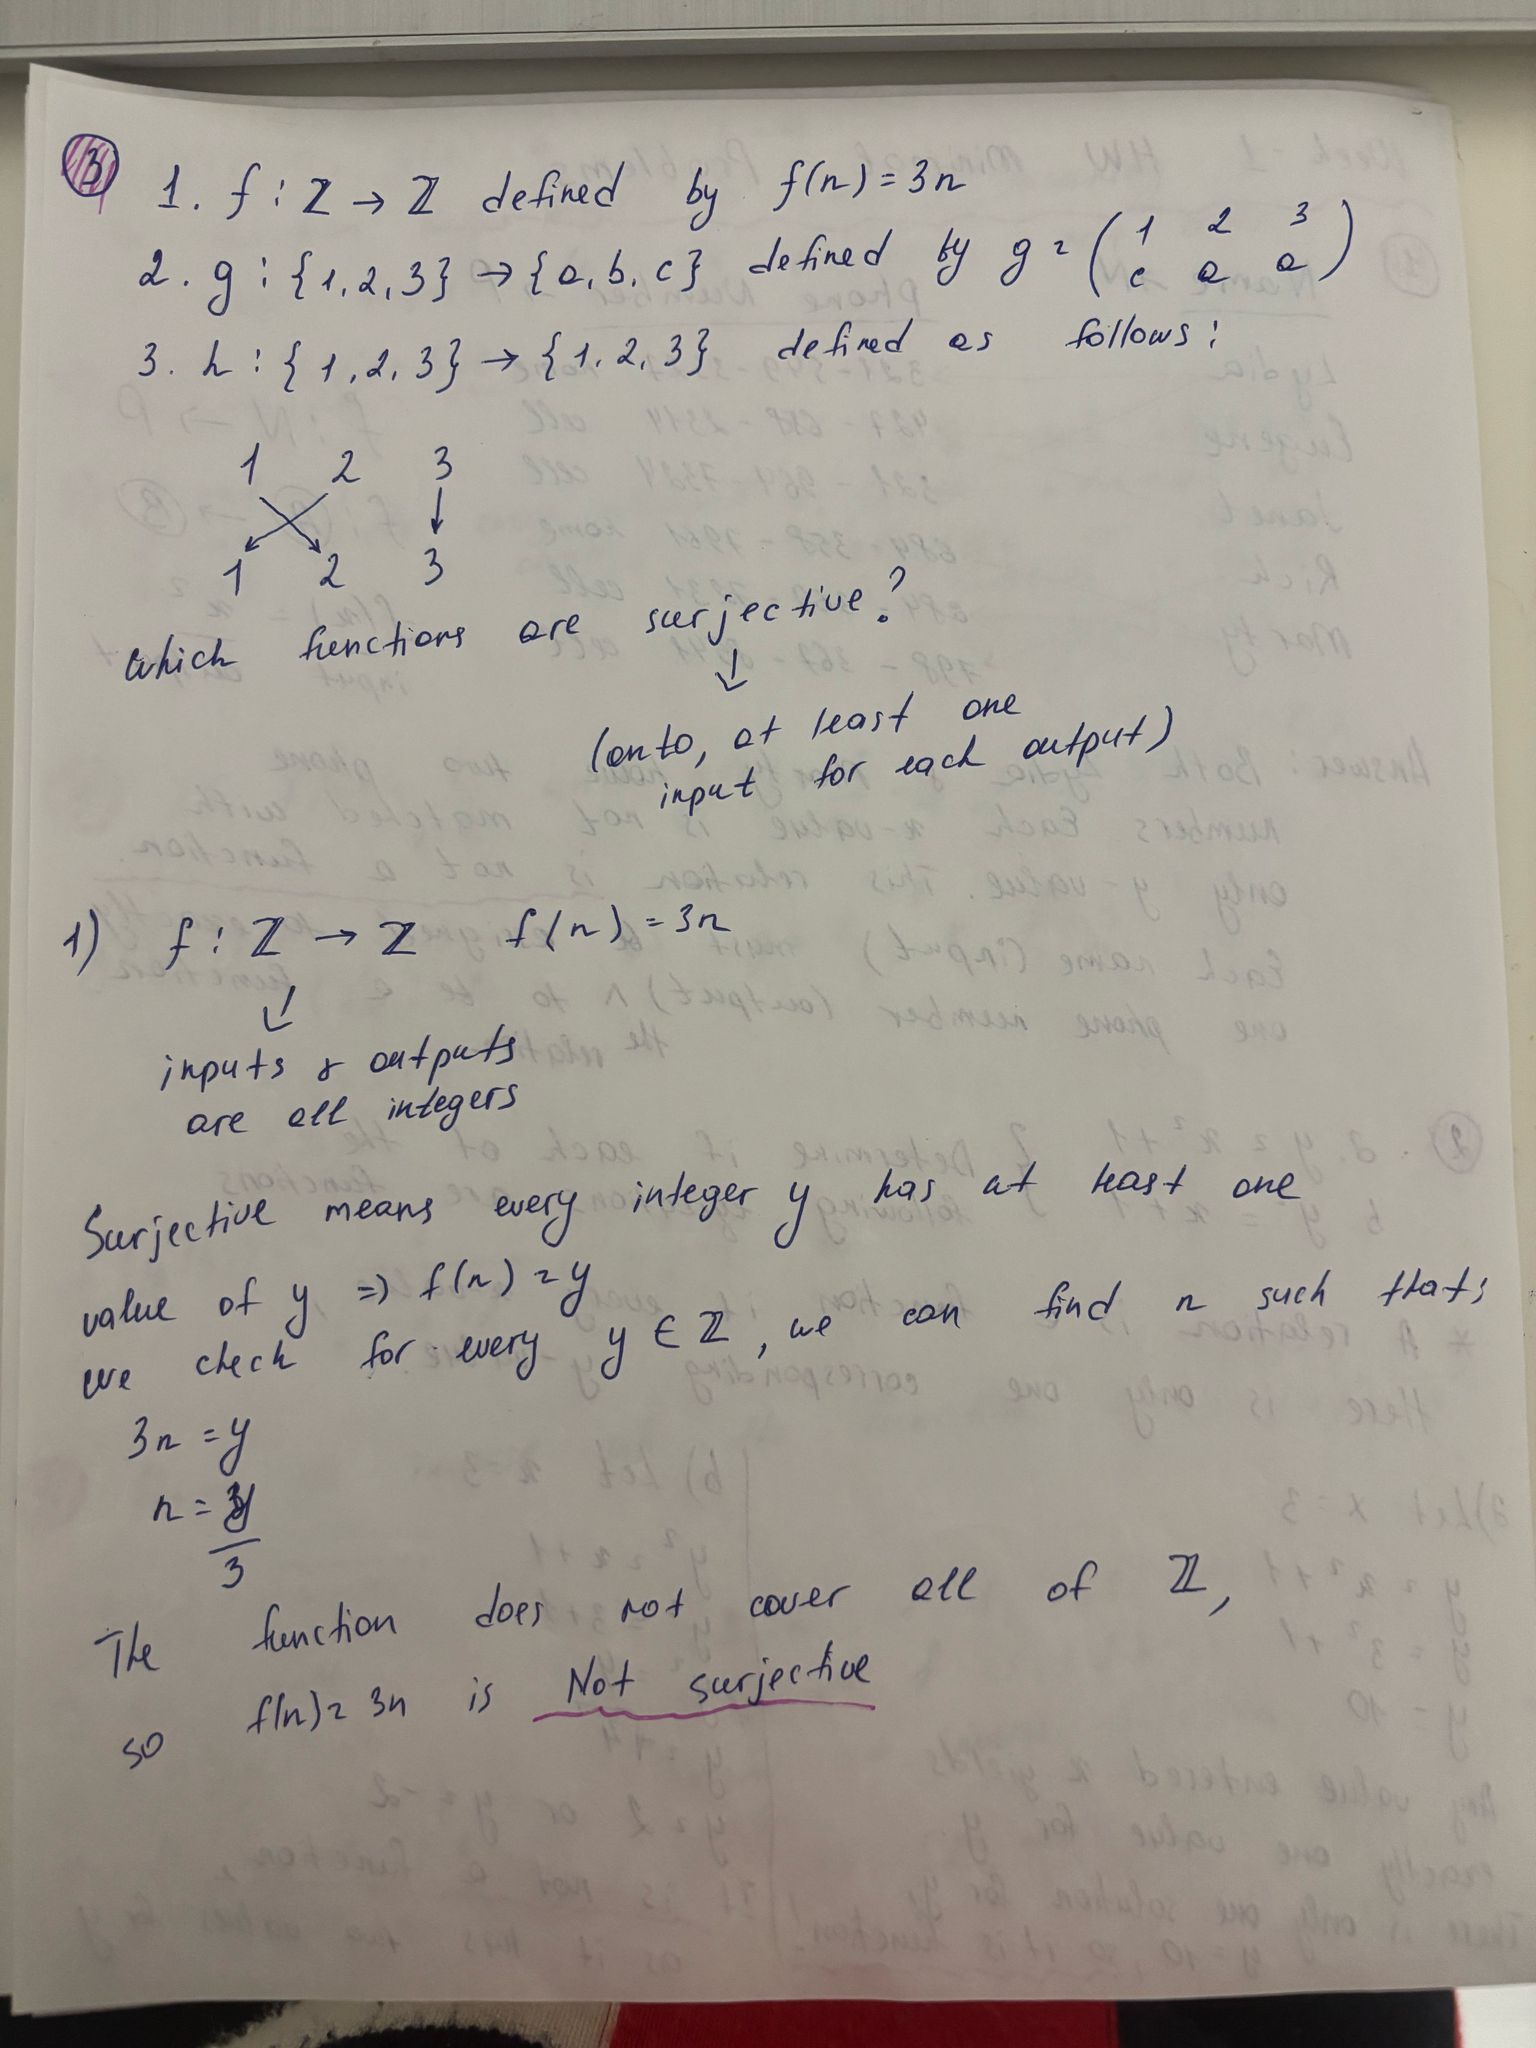 3
1. f : ℤ → ℤ defined by f(n) = 3n
2. g : {1, 2, 3} → {a, b, c} defined by g = (1 2 3
c a a)
3. h : {1, 2, 3} → {1, 2, 3} defined as follows:
1 2 3
1 2 3
Which functions are surjective?
(onto, at least one
input for each output)
1) f : ℤ → ℤ f(n) = 3n
inputs & outputs
are all integers
Surjective means every integer y has at least one
value of y ⇒ f(n) = y
we check for every y ∈ ℤ, we can find n such that:
3n = y
n = y
3
The function does not cover all of ℤ,
so f(n) = 3n is Not surjective